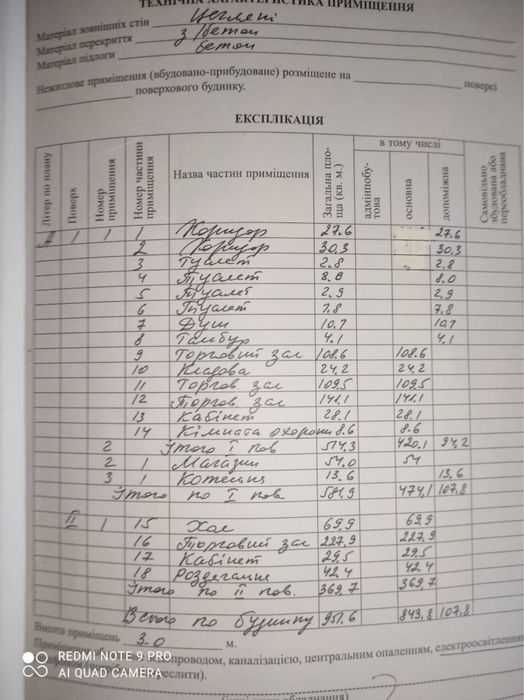 ТЕХНІЧНА ХАРАКТЕРИСТИКА ПРИМІЩЕННЯ
Матеріал зовнішніх стін Цегляні
Матеріал перекриття з/бетон
Матеріал підлоги бетон
Нежитлове приміщення (вбудовано-прибудоване) розміщене на поверсі
поверхового будинку.
ЕКСПЛІКАЦІЯ
Літер по плану Поверх Номер приміщення Номер частини приміщення Назва частин приміщення Загальна площа (кв. м.) в тому числі адмінпобутова основна допоміжна Самовільно збудована або переобладнана
I 1 1 Коридор 27.6 27.6
2 Коридор 30,3 30,3
3 Туалет 2.8 2.8
4 Туалет 8.0 8.0
5 Туалет 2.9 2,9
6 Туалет 7,8 7,8
7 Душ 10,7 10,7
8 Тамбур 4.1 4,1
9 Торговий зал 108.6 108.6
10 Кладова 24,2 24,2
11 Торгов. зал 109,5 109,5
12 Торгов. зал 141,1 141,1
13 Кабінет 28.1 28,1
14 Кімната охорони 8.6 8.6
2 Итого I пов 514,3 420,1 94,2
2 1 Магазин 54,0 54
3 1 Котельня 13,6 13,6
Итого по I пов. 581,9 474,1 107,8
II 1 15 Хол 69,9 69,9
16 Торговий зал 227,9 227,9
17 Кабінет 29,5 29,5
18 Роздягання 42,4 42,4
Итого по II пов. 369,7 369,7
Всего по будинку 951.6 843,8 107,8
Висота приміщень 3.0 м.
проводом, каналізацією, центральним опаленням, електроосвітленням
REDMI NOTE 9 PRO
AI QUAD CAMERA